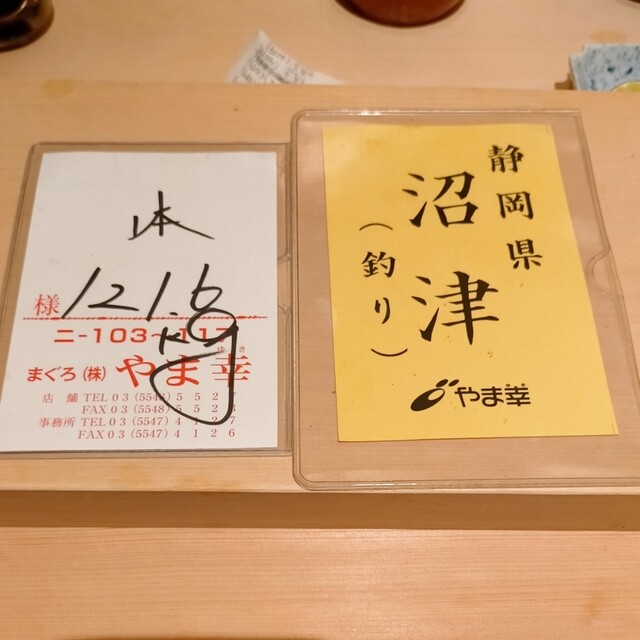 本
121.6
kg
様
ニ-103~117
まぐろ(株)やま幸
ゆき
店舗 TEL 03(5548)5527
FAX 03(5548)5528
事務所 TEL 03(5547)4127
FAX 03(5547)4126
静岡県
沼津
(釣り)
やま幸